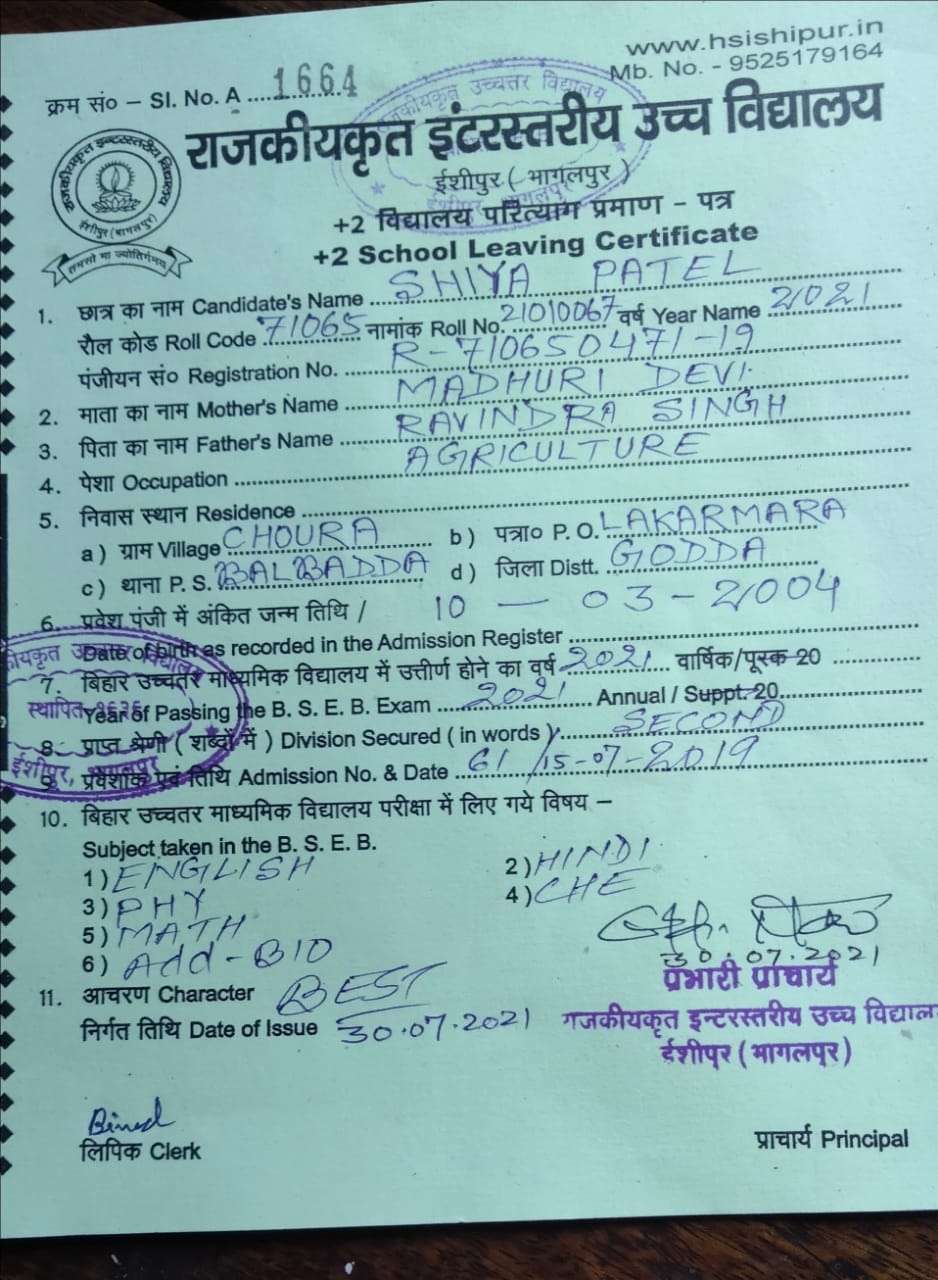 www.hsishipur.in
Mb. No. - 9525179164
क्रम सं० – Sl. No. A ....1664
राजकीयकृत इंटरस्तरीय उच्च विद्यालय
ईशीपुर ( भागलपुर )
+2 विद्यालय परित्याग प्रमाण – पत्र
+2 School Leaving Certificate
राजकीयकृत इन्टरस्तरीय उच्च विद्यालय
ईशीपुर (भागलपुर)
तमसो मा ज्योतिर्गमय
1. छात्र का नाम Candidate's Name SHIYA PATEL
रौल कोड Roll Code 71065 नामांक Roll No. 21010067 वर्ष Year Name 2021
पंजीयन सं० Registration No. R-710650471-19
2. माता का नाम Mother's Name MADHURI DEVI.
3. पिता का नाम Father's Name RAVINDRA SINGH
4. पेशा Occupation AGRICULTURE
5. निवास स्थान Residence
a ) ग्राम Village CHOURA b ) पत्रा० P. O. LAKARMARA
c ) थाना P. S. BALBADDA d ) जिला Distt. GODDA
6. प्रवेश पंजी में अंकित जन्म तिथि / 10 – 03 - 2004
Date of birth as recorded in the Admission Register
7. बिहार उच्चतर माध्यमिक विद्यालय में उत्तीर्ण होने का वर्ष 2021 वार्षिक/पूरक 20
Year of Passing the B. S. E. B. Exam 2021 Annual / Suppt. 20
8. प्राप्त श्रेणी ( शब्दों में ) Division Secured ( in words ) SECOND
9. प्रवेशांक एवं तिथि Admission No. & Date 61 /15-07-2019
10. बिहार उच्चतर माध्यमिक विद्यालय परीक्षा में लिए गये विषय –
Subject taken in the B. S. E. B.
1 ) ENGLISH 2 ) HINDI.
3 ) PHY 4 ) CHE
5 ) MATH
6 ) Add - BIO
30.07.2021
प्रभारी प्राचार्य
11. आचरण Character BEST
निर्गत तिथि Date of Issue 30.07.2021
राजकीयकृत इन्टरस्तरीय उच्च विद्याल
ईशीपुर (भागलपुर)
Binod
लिपिक Clerk
प्राचार्य Principal